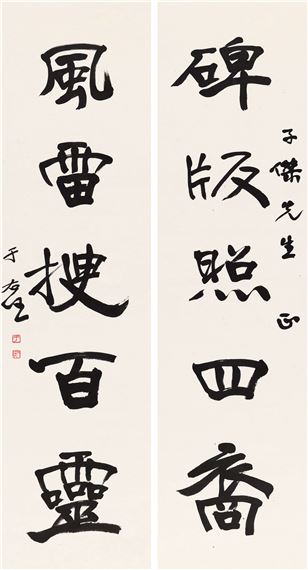 碑版照四裔
子傑先生 正
風雷搜百靈
于右任